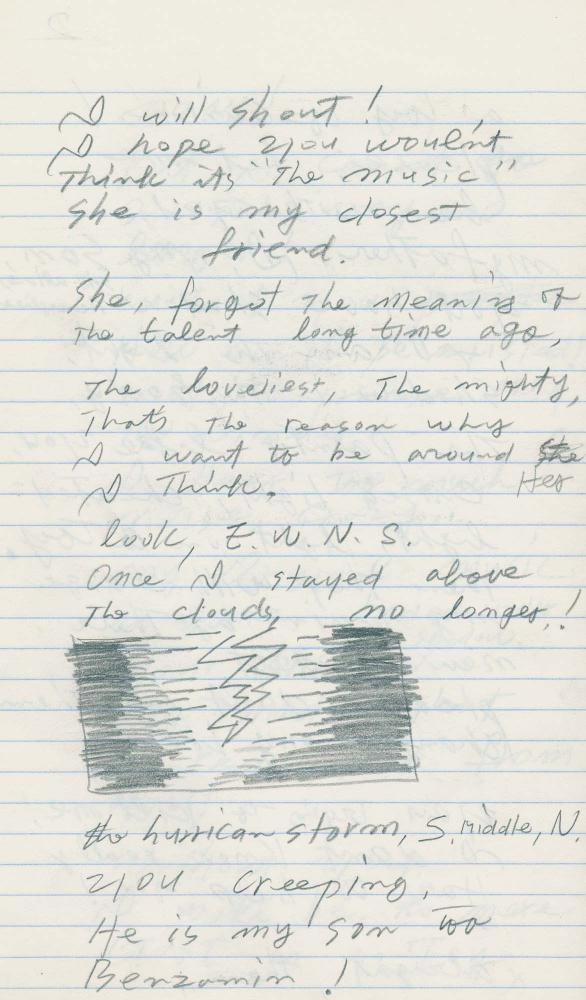 I will shout!
I hope you wouldn't
Think its "The music"
She is my closest
friend.
She, forgot The meaning of
The talent long time ago,
The loveliest, The mighty,
That's The reason why
I want to be around She
I Think. Her
look, E. W. N. S.
Once I stayed above
The clouds, no longer,!
hurrican storm, S. Middle, N.
you creeping,
He is my son too
Benzamin!